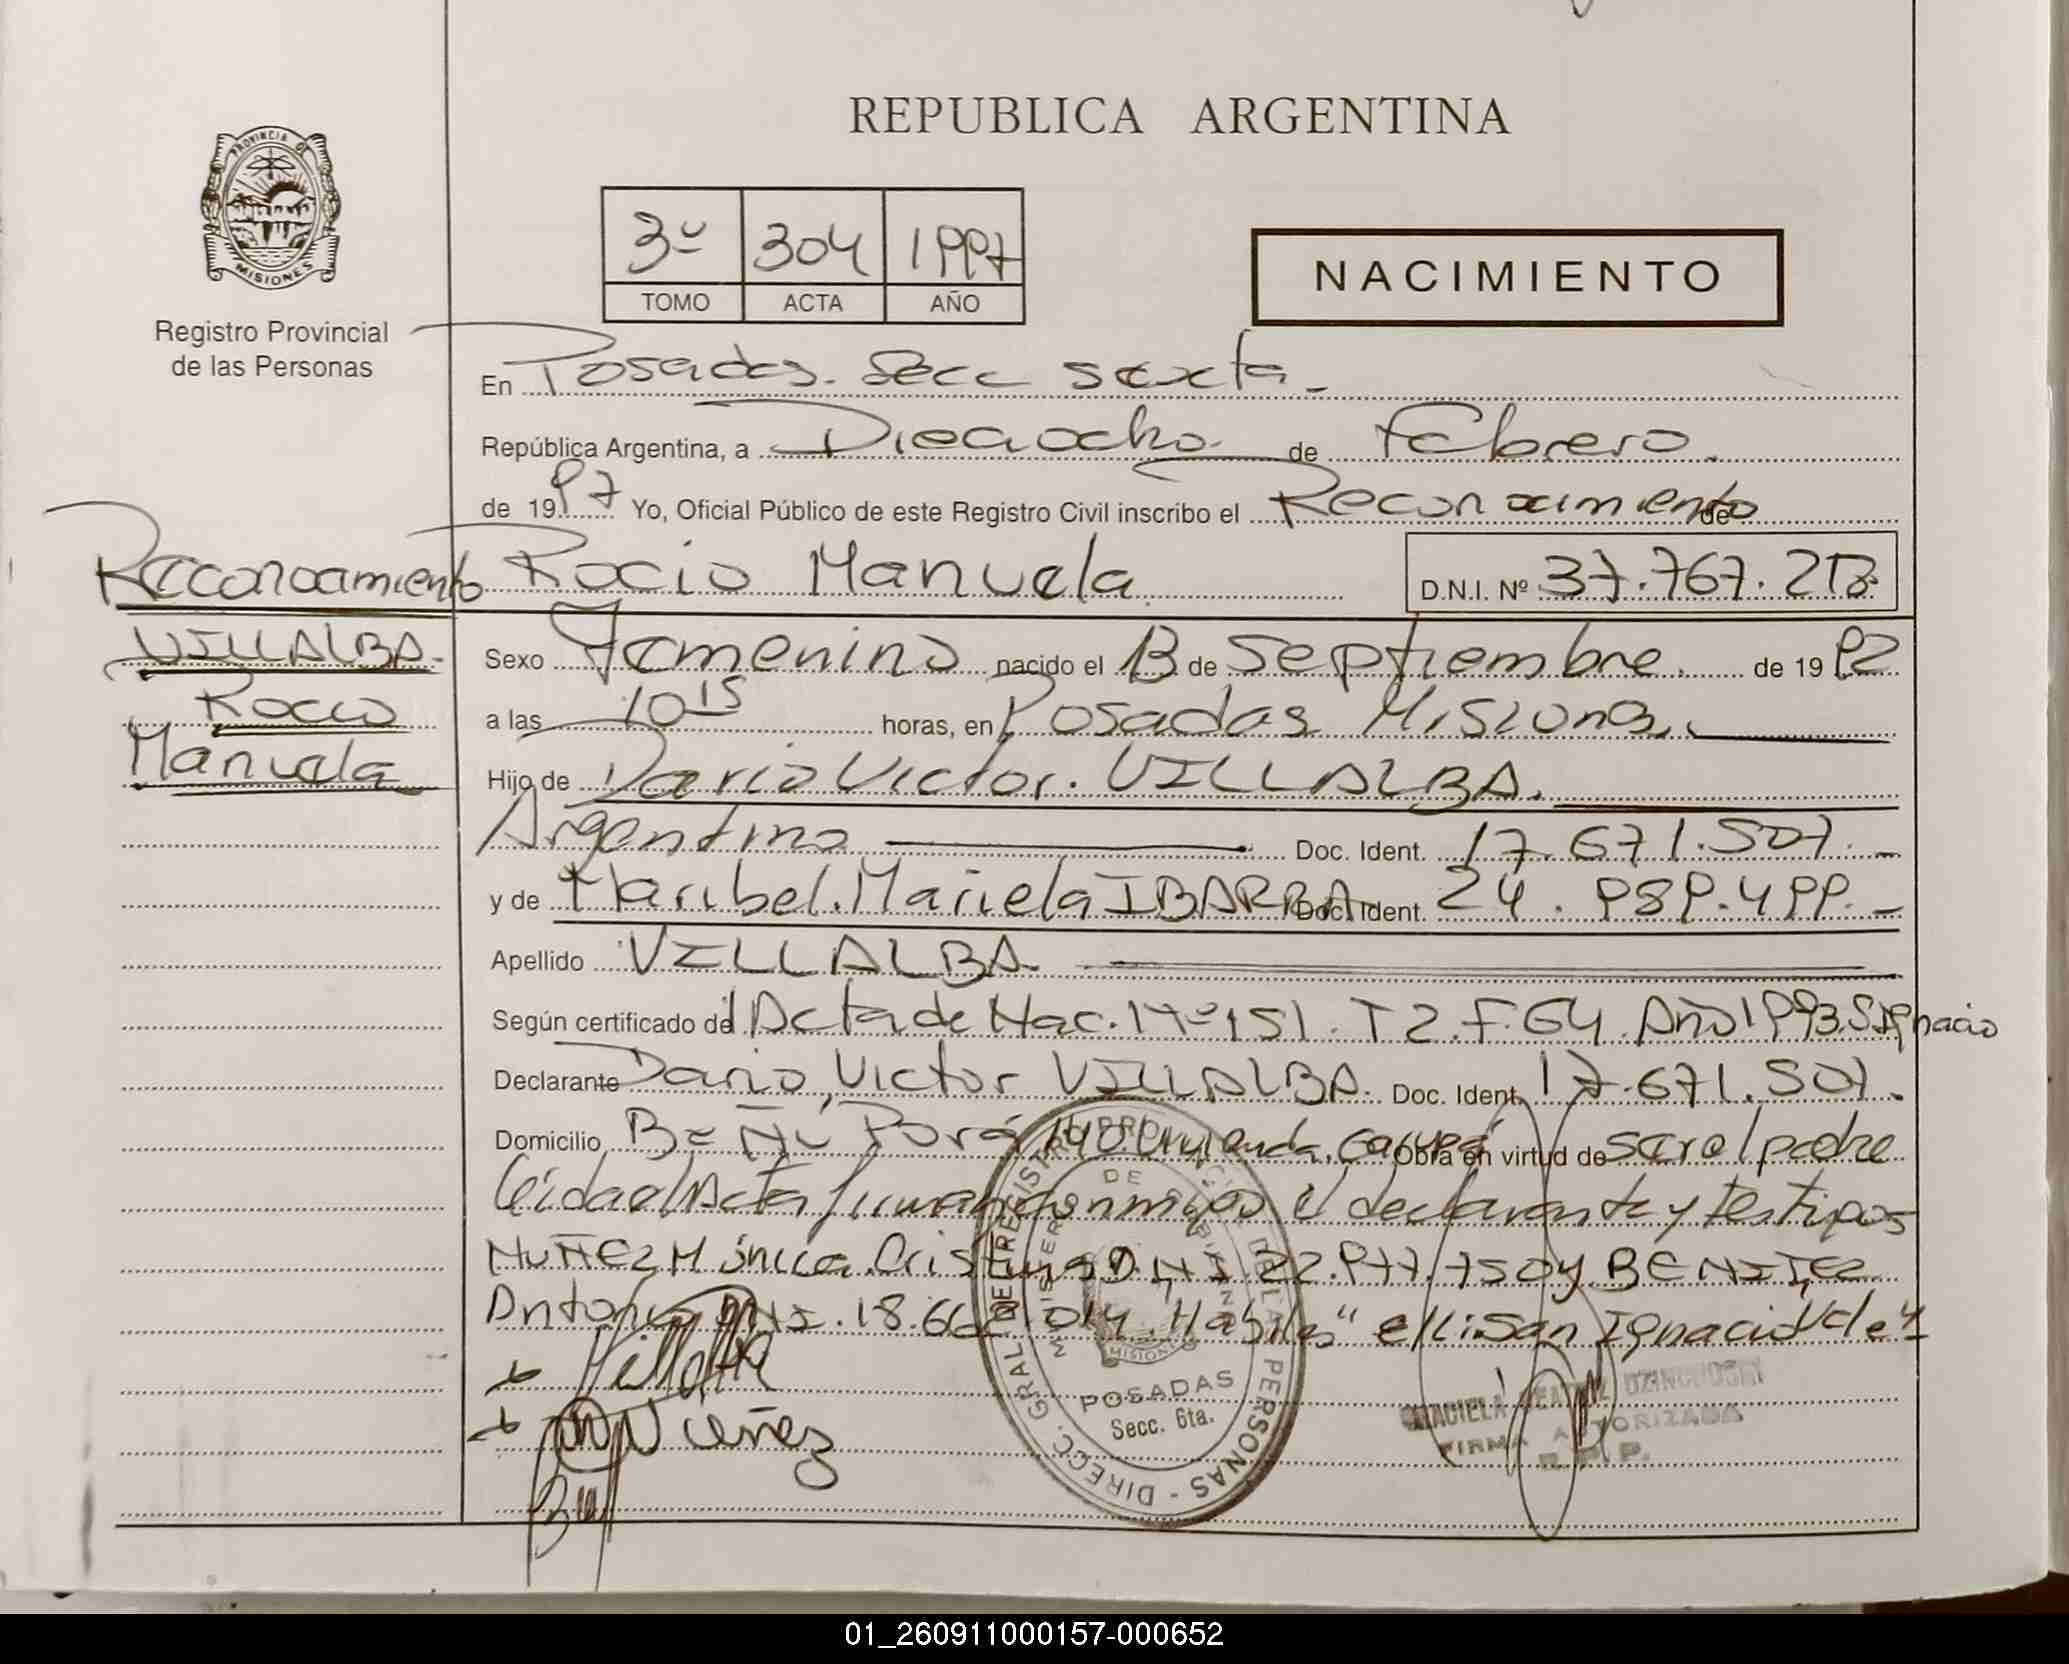 REPUBLICA ARGENTINA
PROVINCIA DE
MISIONES
Registro Provincial
de las Personas
3º 304 1997
TOMO ACTA AÑO
NACIMIENTO
En Posadas. Secc sexta.
República Argentina, a Dieciocho de Febrero.
de 1997 Yo, Oficial Público de este Registro Civil inscribo el Reconocimiento de
Reconocimiento
VILLALBA.
Rocio
Manuela
Rocio Manuela D.N.I. Nº 37.767.213
Sexo Femenino nacido el 13 de Septiembre. de 1992
a las 10 15 horas, en Posadas Misiones.
Hijo de Dario Victor. VILLALBA.
Argentino Doc. Ident. 17.671.507.
y de Maribel. Mariela IBARRA Doc. Ident. 24.989.499.
Apellido VILLALBA
Según certificado del Acta de Nac. Nº 151. T 2. F. 64. Año 1993. S. Ignacio
Declarante Dario, Victor VILLALBA. Doc. Ident. 17.671.507.
Domicilio 140. Garupá Obra en virtud de ser el padre
leida el Acta firman conmigo el declarante y testigos
NUÑEZ Mónica. Cristina D.N.I. 22.977.750 y BENITEZ
Antonio DNI. 18. "Habiles" San Ignacio Vale
Nuñez
POSADAS
Secc. 6ta.
DIRECC. GRAL DE REGISTRO DE LA PERSONAS
MISIONES
GRACIELA BEATRIZ
FIRMA AUTORIZADA
R. P. P.
01_260911000157-000652